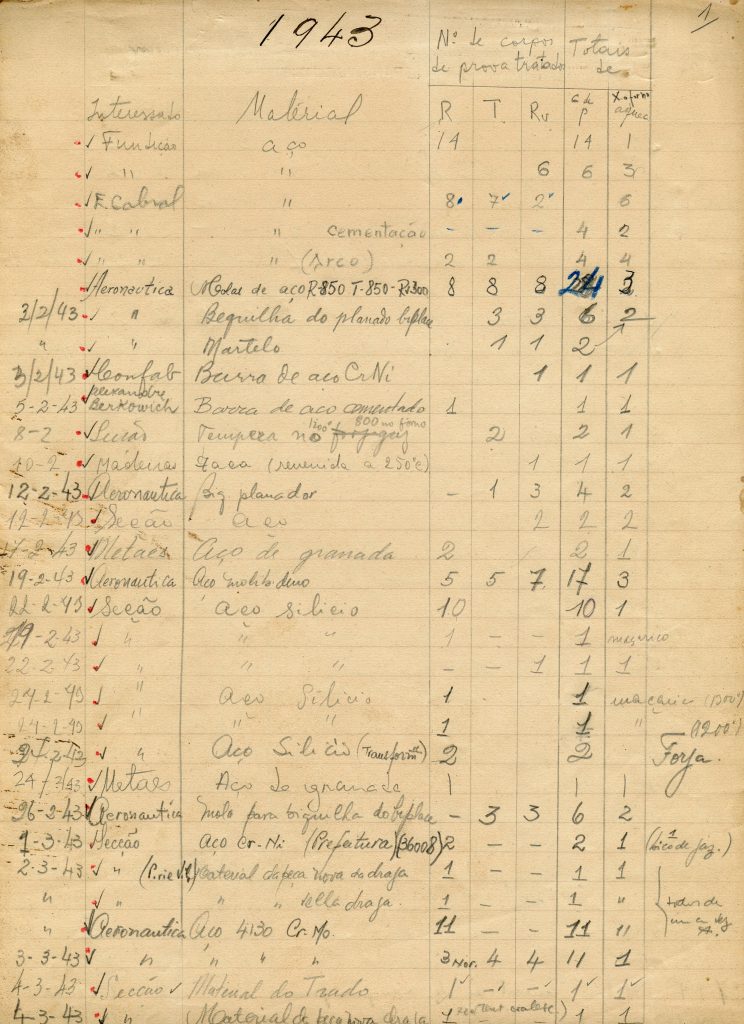 1943
1
Nº de corpos Totais
de prova tratados de
Interessado Material R T Rv c de p X o forno aquec
✓ Fundição aço 14 14 1
✓ " " 6 6 3
✓ E. Cabral " 8 7 2 6
✓ " " " cementação - - - 4 2
✓ " " " (Arco) 2 2 4 4
Aeronautica Molas de aço R-850 T-850-Rv300 8 8 8 24 3
3/2/43 ✓ " Bequilha do planado biplace 3 3 6 2
" ✓ " Martelo 1 1 2
3/2/43 ✓ Confab Barra de aço Cr Ni 1 1 1
5-2-43 Berkowich Barra de aço cementado 1 1 1
1200° 800 no forno
8-2 ✓ Tempera no 2 2 1
10-2 ✓ Madeiras Faca (revenida a 250°C) 1 1 1
12-2-43 ✓ Aeronautica Biq planador - 1 3 4 2
✓ Secção Aço 2 2 2
17-2-43 ✓ Metaes Aço de granada 2 2 1
19-2-43 ✓ Aeronautica Aço molibideno 5 5 7 17 3
22-2-43 ✓ Secção Aço Silicio 10 10 1
-2-43 ✓ " " " 1 - - 1 maçarico
22-2-43 ✓ " " " - - 1 1 1
✓ " Aço Silicio 1 1 maçarico (1300°)
✓ " " " 1 1 " (1200°)
✓ " Aço Silicio (Transform) 2 2 Forja.
✓ Metaes Aço de granada 1 1 1
26-2-43 ✓ Aeronautica Mola para biquilha do biplace - 3 3 6 2
1-3-43 ✓ Secção Aço Cr-Ni (Prefeitura) (36008) 2 - - 2 1 (1 bico de gaz.)
2-3-43 ✓ " Material da peça nova da draga 1 - - 1 1
" ✓ " " " vella draga. 1 - - 1 "
todos de uma vez
" ✓ Aeronautica Aço 4130 Cr-Mo. 11 - - 11 "
3-3-43 ✓ " " " " 3 Nor. 4 4 11 1
4-3-43 ✓ Secção ✓ Material do Trado 1 - - 1 1
4-3-43 ✓ " (Material de peça nova draga 1 1 1